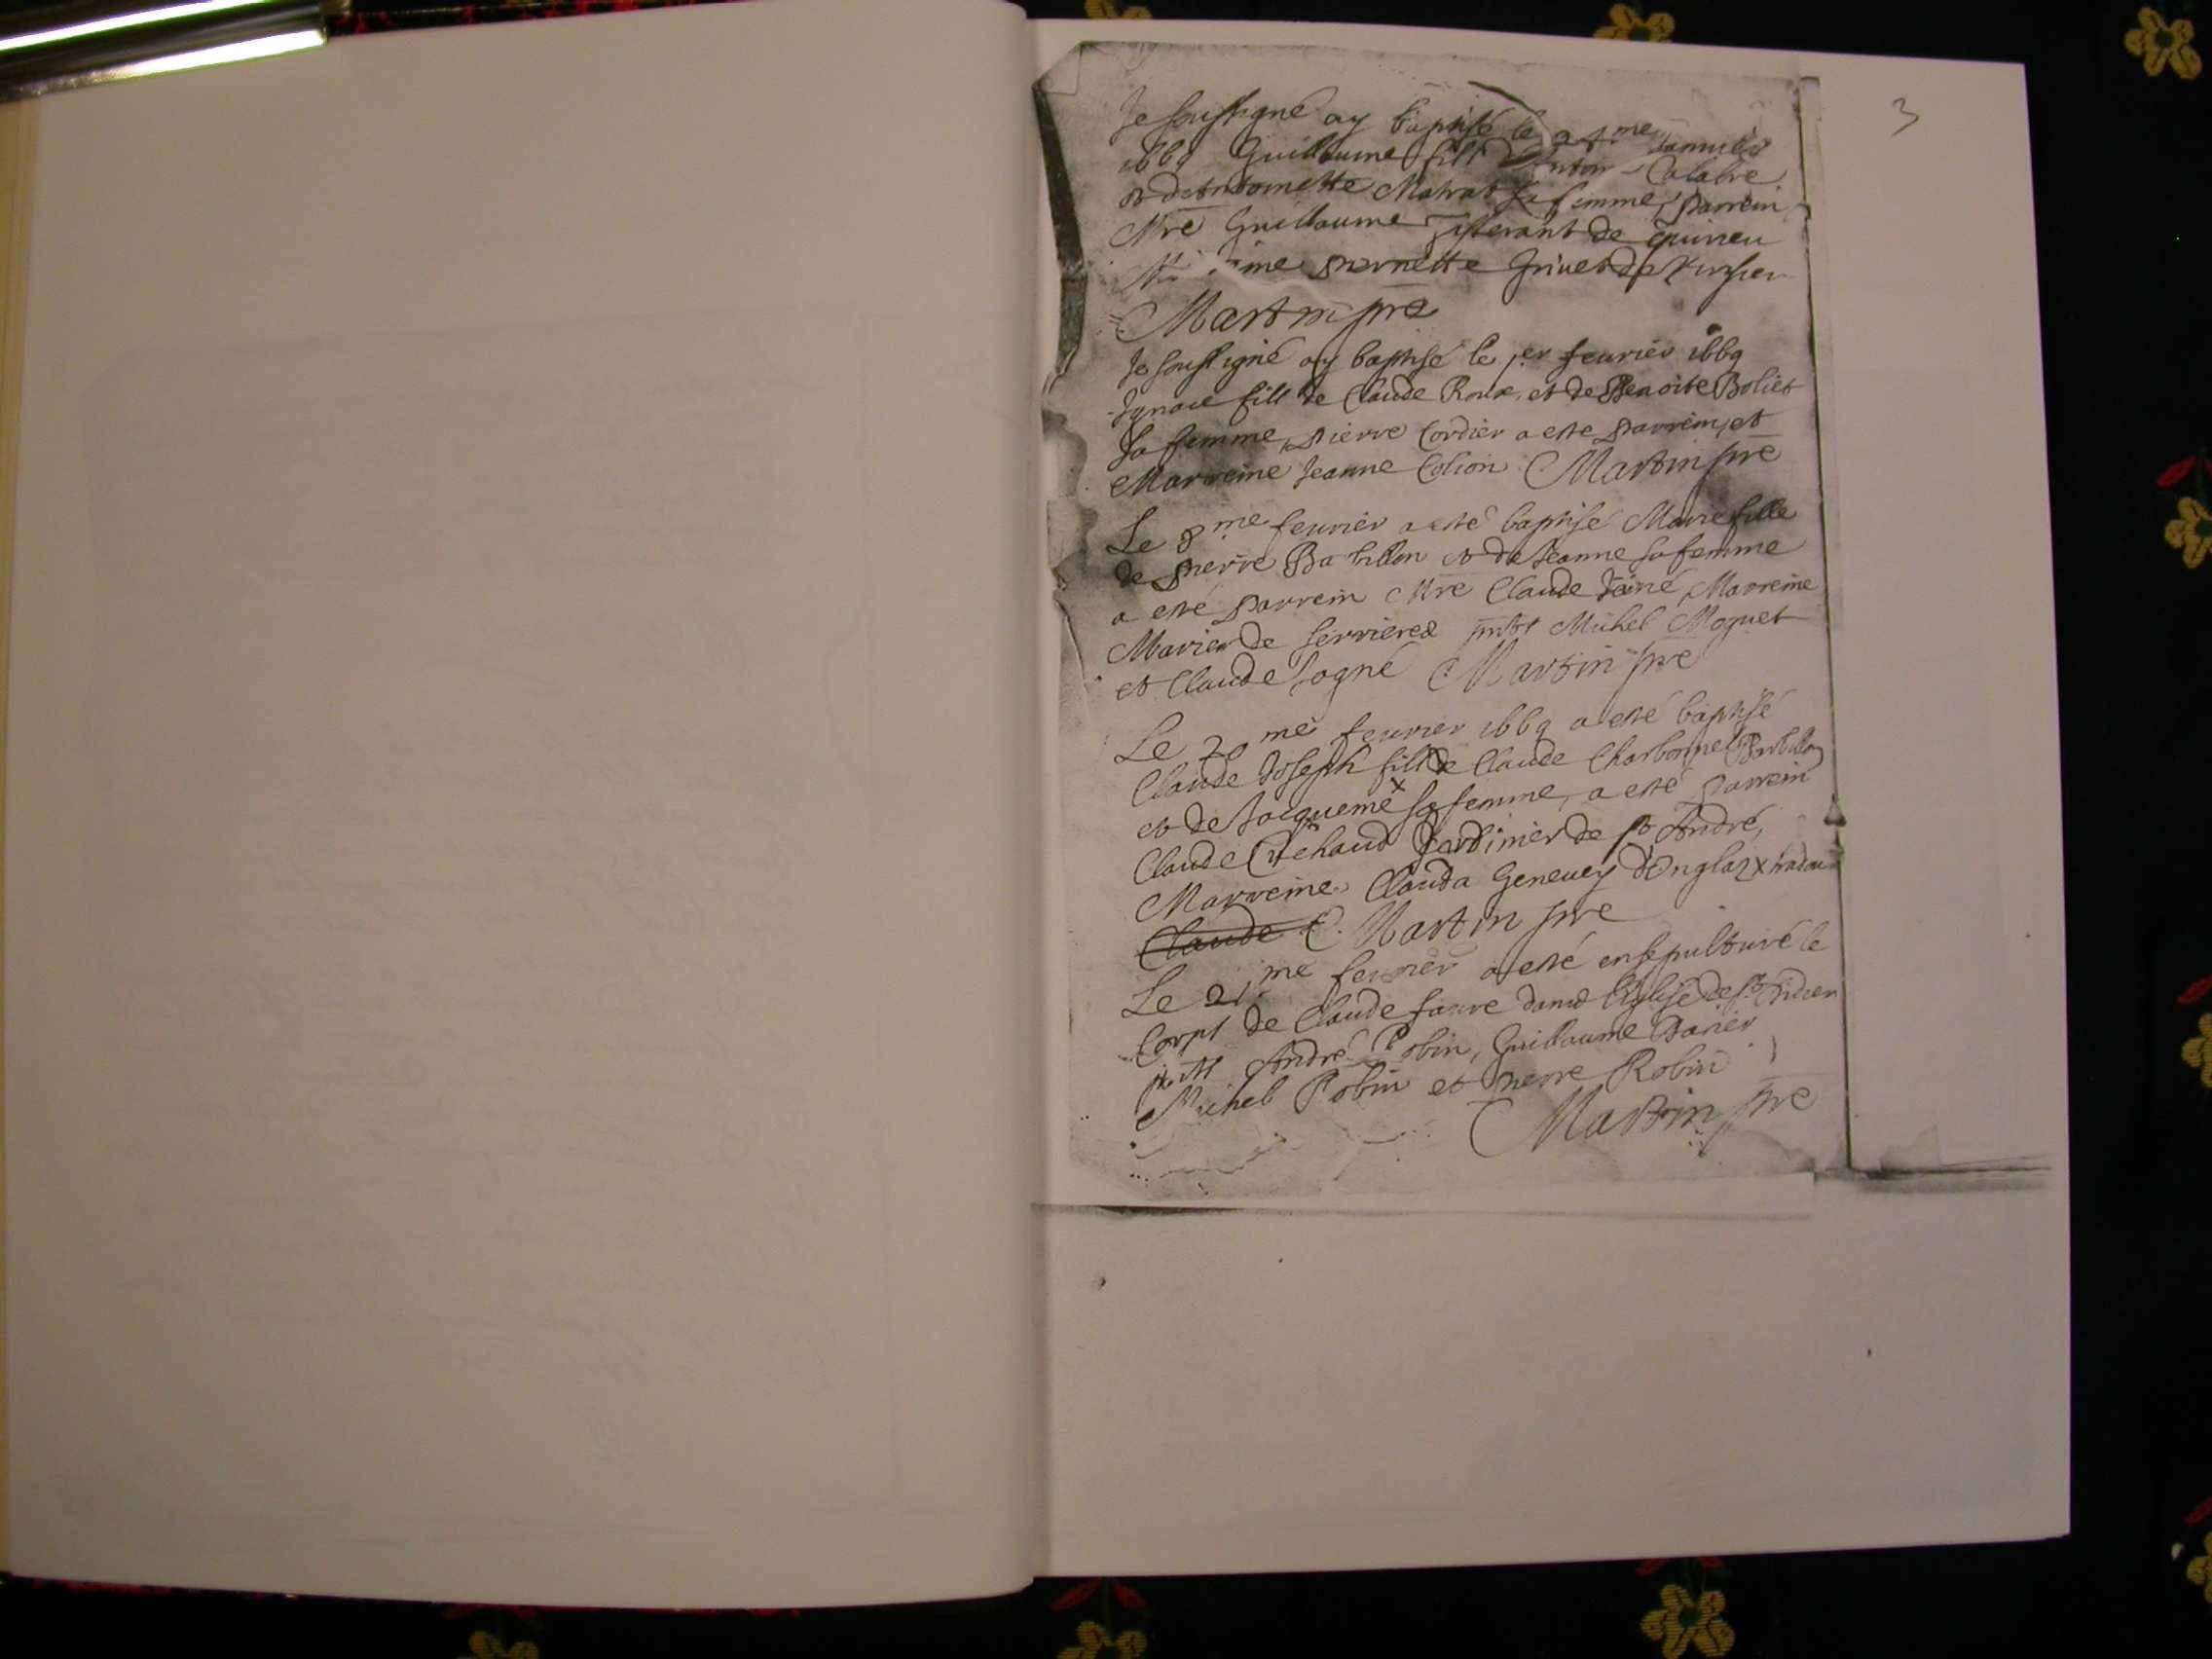 3
Je soussigné ay baptisé le 24me Januier
1669 Guillaume fils Calabre
et dAntoinette sa femme, parrein
Mre Guillaume de quirieu
pernette
Martin pre
Je soussigné ay baptisé le 1er feurier 1669
Ignace fils de Claude Roux, et de Benoite Boliet
sa femme, pierre Cordier a esté parrein, et
Marreine Jeanne Colion Martin pre
Le 8me feurier a esté baptisé Marie fille
de pierre et de Jeanne sa femme
a esté parrein Mre Claude Marreine
Marie de serrieres Michel Moquet
et Claude Martin pre
Le 20me feurier 1669 a esté baptisé
Claude Joseph fils de Claude Charbonnel
et de Jacqueme x sa femme, a esté parrein
Claude Jardinier de st André,
Marreine Clauda Geneuey x
Claude C. Martin pre
Le 21me feurier a esté ensepulturé le
Corps de Claude faure dans l'Eglise de st Didier
André Robin, Guillaume
Michel Robin et pierre Robin
Martin pre